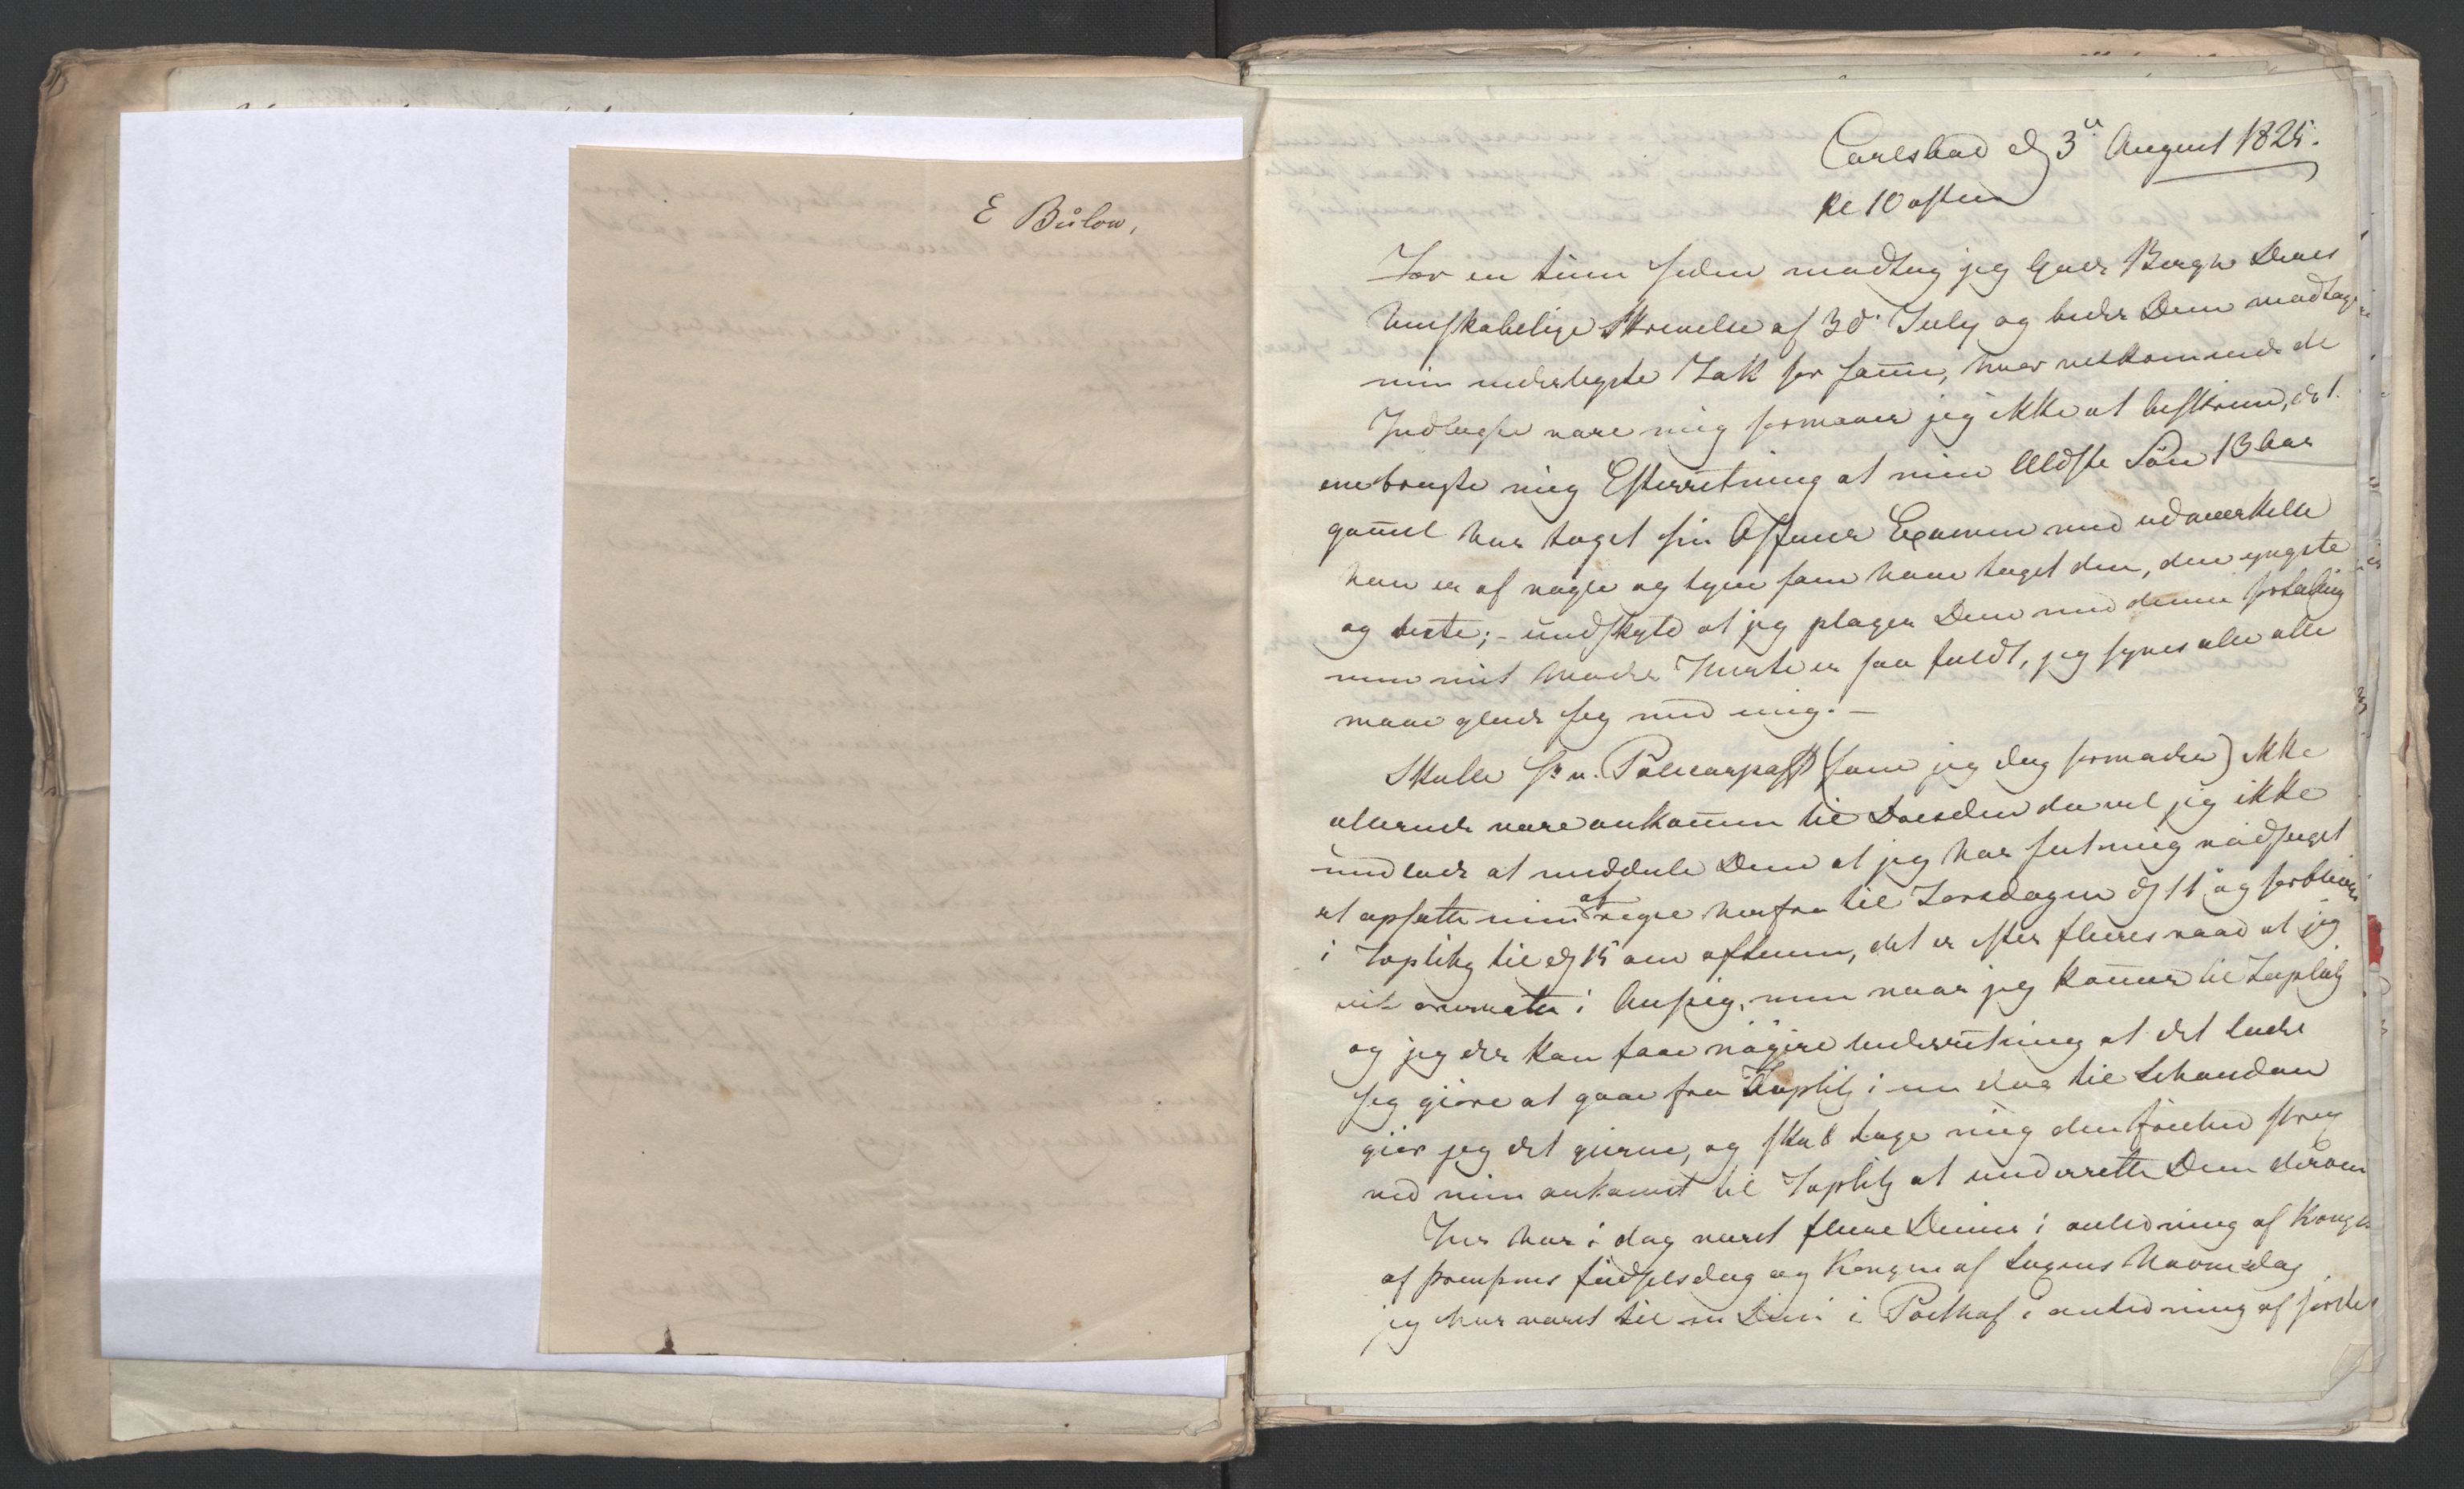 E Bülow,
Carlsbad d 3ᵉ August 1825.
Kl 10 aften
For en time siden modtog jeg Gode Bergh Deres
Venskabelige Skrivelse af 30 July og beder Dem modtage
min inderligste Tak for samme, hvor velkommende de
Indlagte vare mig formaaer jeg ikke at beskrive, det 1.
ene bragte mig Efterretning at min Ældste Søn 13 Aar
gammel har taget sin Officeer Examen med udmærkelse
han er af nogle og tyve som have taget den, den yngste
og beste; - undskyld at jeg plager Dem med denne fortælling
men mit Moder Hierte er saa fuldt, jeg synes alle
maae glæde sig med mig. -
Skulle Fr. v. (som jeg dog formoder) ikke
allerede være ankommen til Dresden da vil jeg ikke
undlade at meddele Dem at jeg har seet mig nødsaget
at opsætte min af reise herfra til Torsdagen d 11 og forbliver
i Toplitz til d 15 om aftenen, det er efter fleeres raad at jeg
vil overnatte i Aussig, men naar jeg kommer til Toplitz
og jeg der kan faae nøgere underretning at det lader
sig giøre at gaae fra Toplitz i en dag til Schandau
giør jeg det gierne, og skal tage mig den friehed strax
ved min ankomst til Toplitz at underrette Dem derom
Her har i dag været fleere Dineer i anledning af Kongen
af Preussens fødselsdag og Kongen af Navnedag
jeg har været til en Diné i Posthof i anledning af første